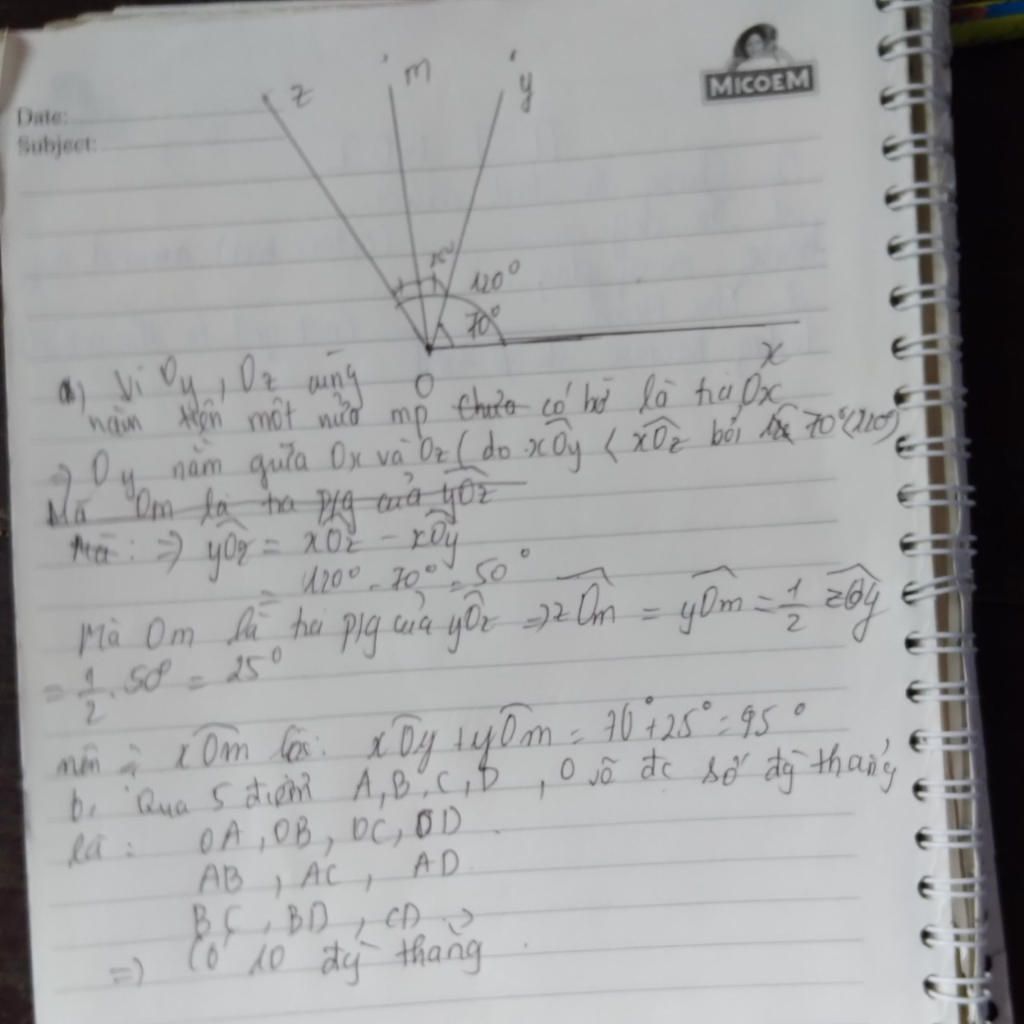 MICOEM
Date:
Subject:
z m y
120°
70°
x
O
a) Vì Oy, Oz cùng
nằm trên một nửa mp chứa có bờ là tia Ox
=> Oy nằm giữa Ox và Oz (do xOy < xOz bởi 70° < 120°)
Mà Om là tia p/g của yOz
Mà: => yOz = xOz - xOy
= 120° - 70° = 50°
Mà Om là tia p/g của yOz => zOm = yOm = 1/2 zOy
= 1/2 . 50 = 25°
nên xOm là: xOy + yOm = 70° + 25° = 95°
b, Qua 5 điểm A, B, C, D, O số đg thẳng
là: OA, OB, OC, OD
AB, AC, AD
BC, BD, CD
=> Có 10 đg thẳng